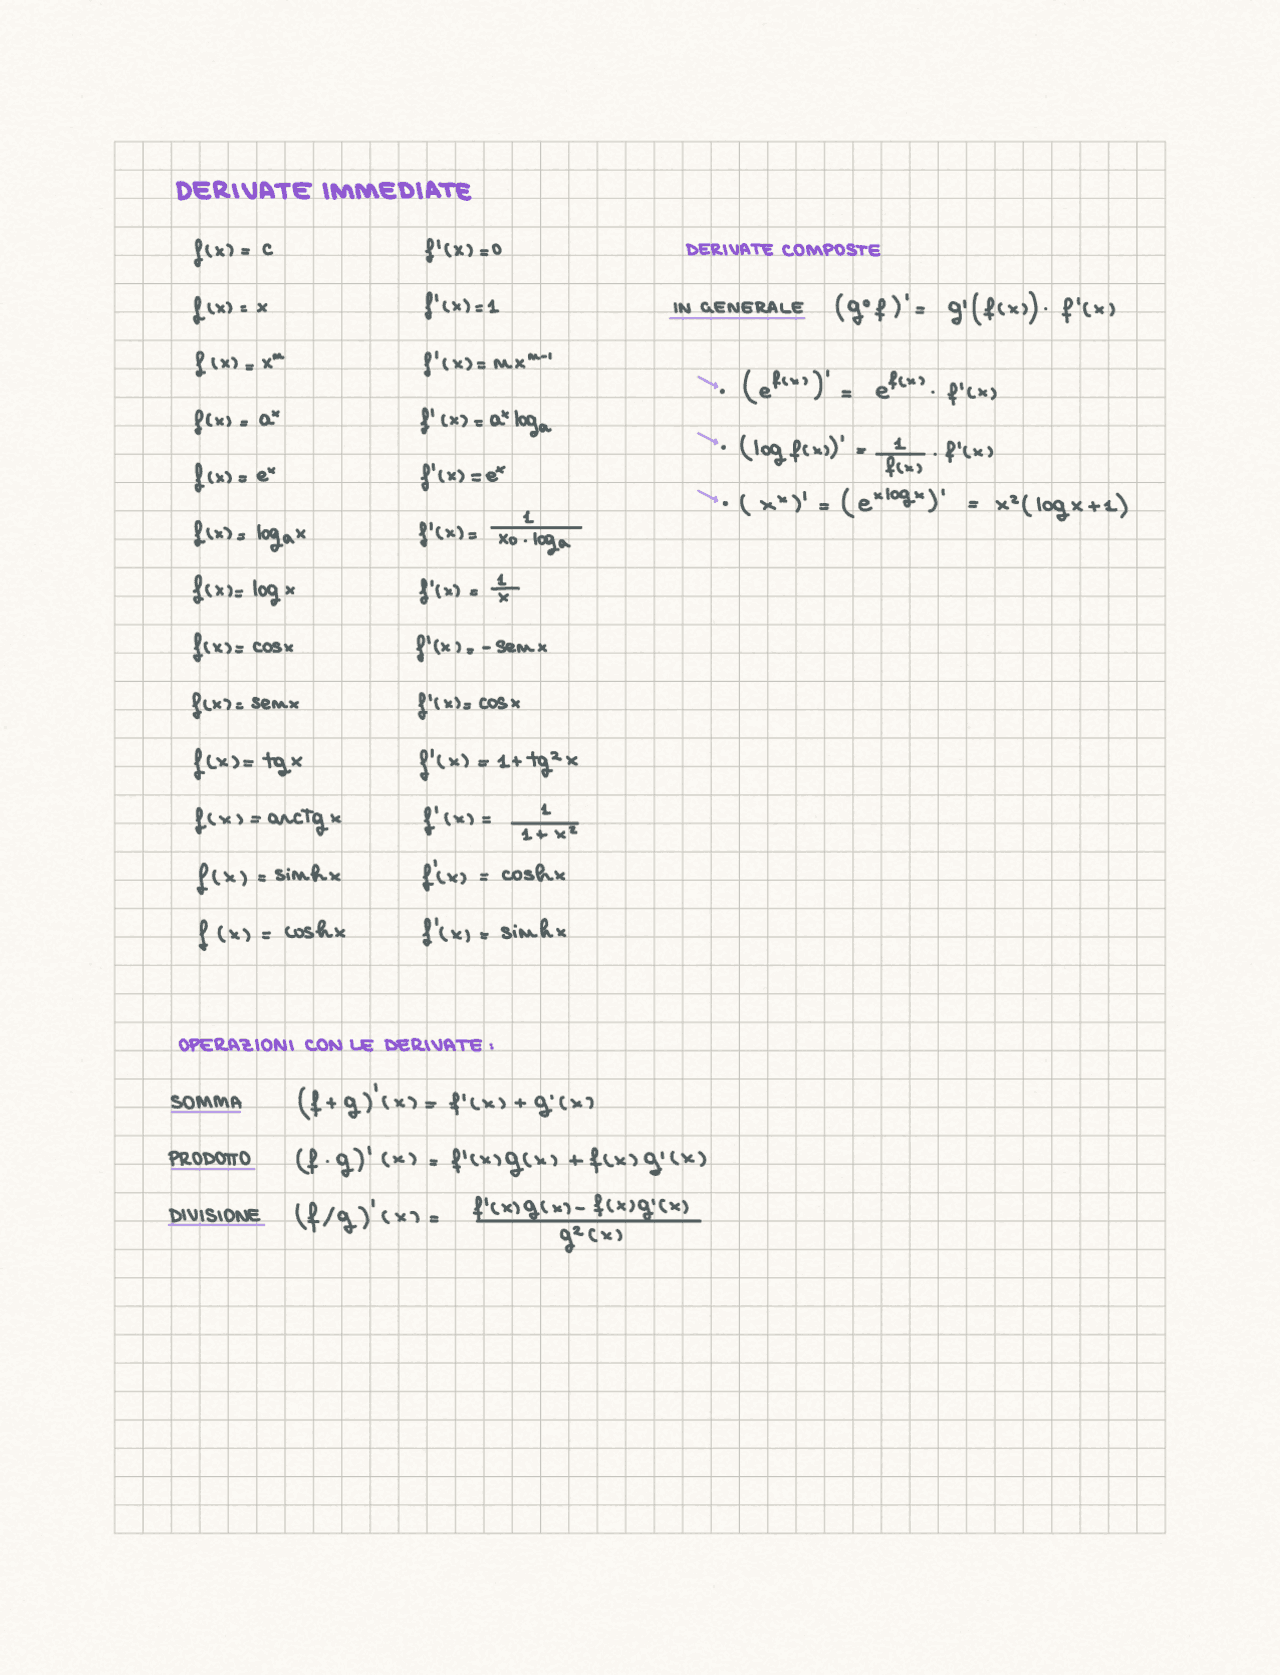 DERIVATE IMMEDIATE
f(x) = c f'(x) = 0
f(x) = x f'(x) = 1
f(x) = xⁿ f'(x) = nxⁿ⁻¹
f(x) = aˣ f'(x) = aˣ logₐ
f(x) = eˣ f'(x) = eˣ
f(x) = logₐx f'(x) = 1/(x₀ · logₐ)
f(x) = log x f'(x) = 1/x
f(x) = cosx f'(x) = -senx
f(x) = senx f'(x) = cosx
f(x) = tgx f'(x) = 1+tg²x
f(x) = arctgx f'(x) = 1/(1+x²)
f(x) = sinhx f'(x) = coshx
f(x) = coshx f'(x) = sinhx
DERIVATE COMPOSTE
IN GENERALE (g∘f)' = g'(f(x)) · f'(x)
· (e^f(x))' = e^f(x) · f'(x)
· (log f(x))' = 1/f(x) · f'(x)
· (xˣ)' = (e^xlogx)' = x²(logx+1)
OPERAZIONI CON LE DERIVATE:
SOMMA (f+g)'(x) = f'(x) + g'(x)
PRODOTTO (f·g)'(x) = f'(x)g(x) + f(x)g'(x)
DIVISIONE (f/g)'(x) = (f'(x)g(x) - f(x)g'(x))/g²(x)